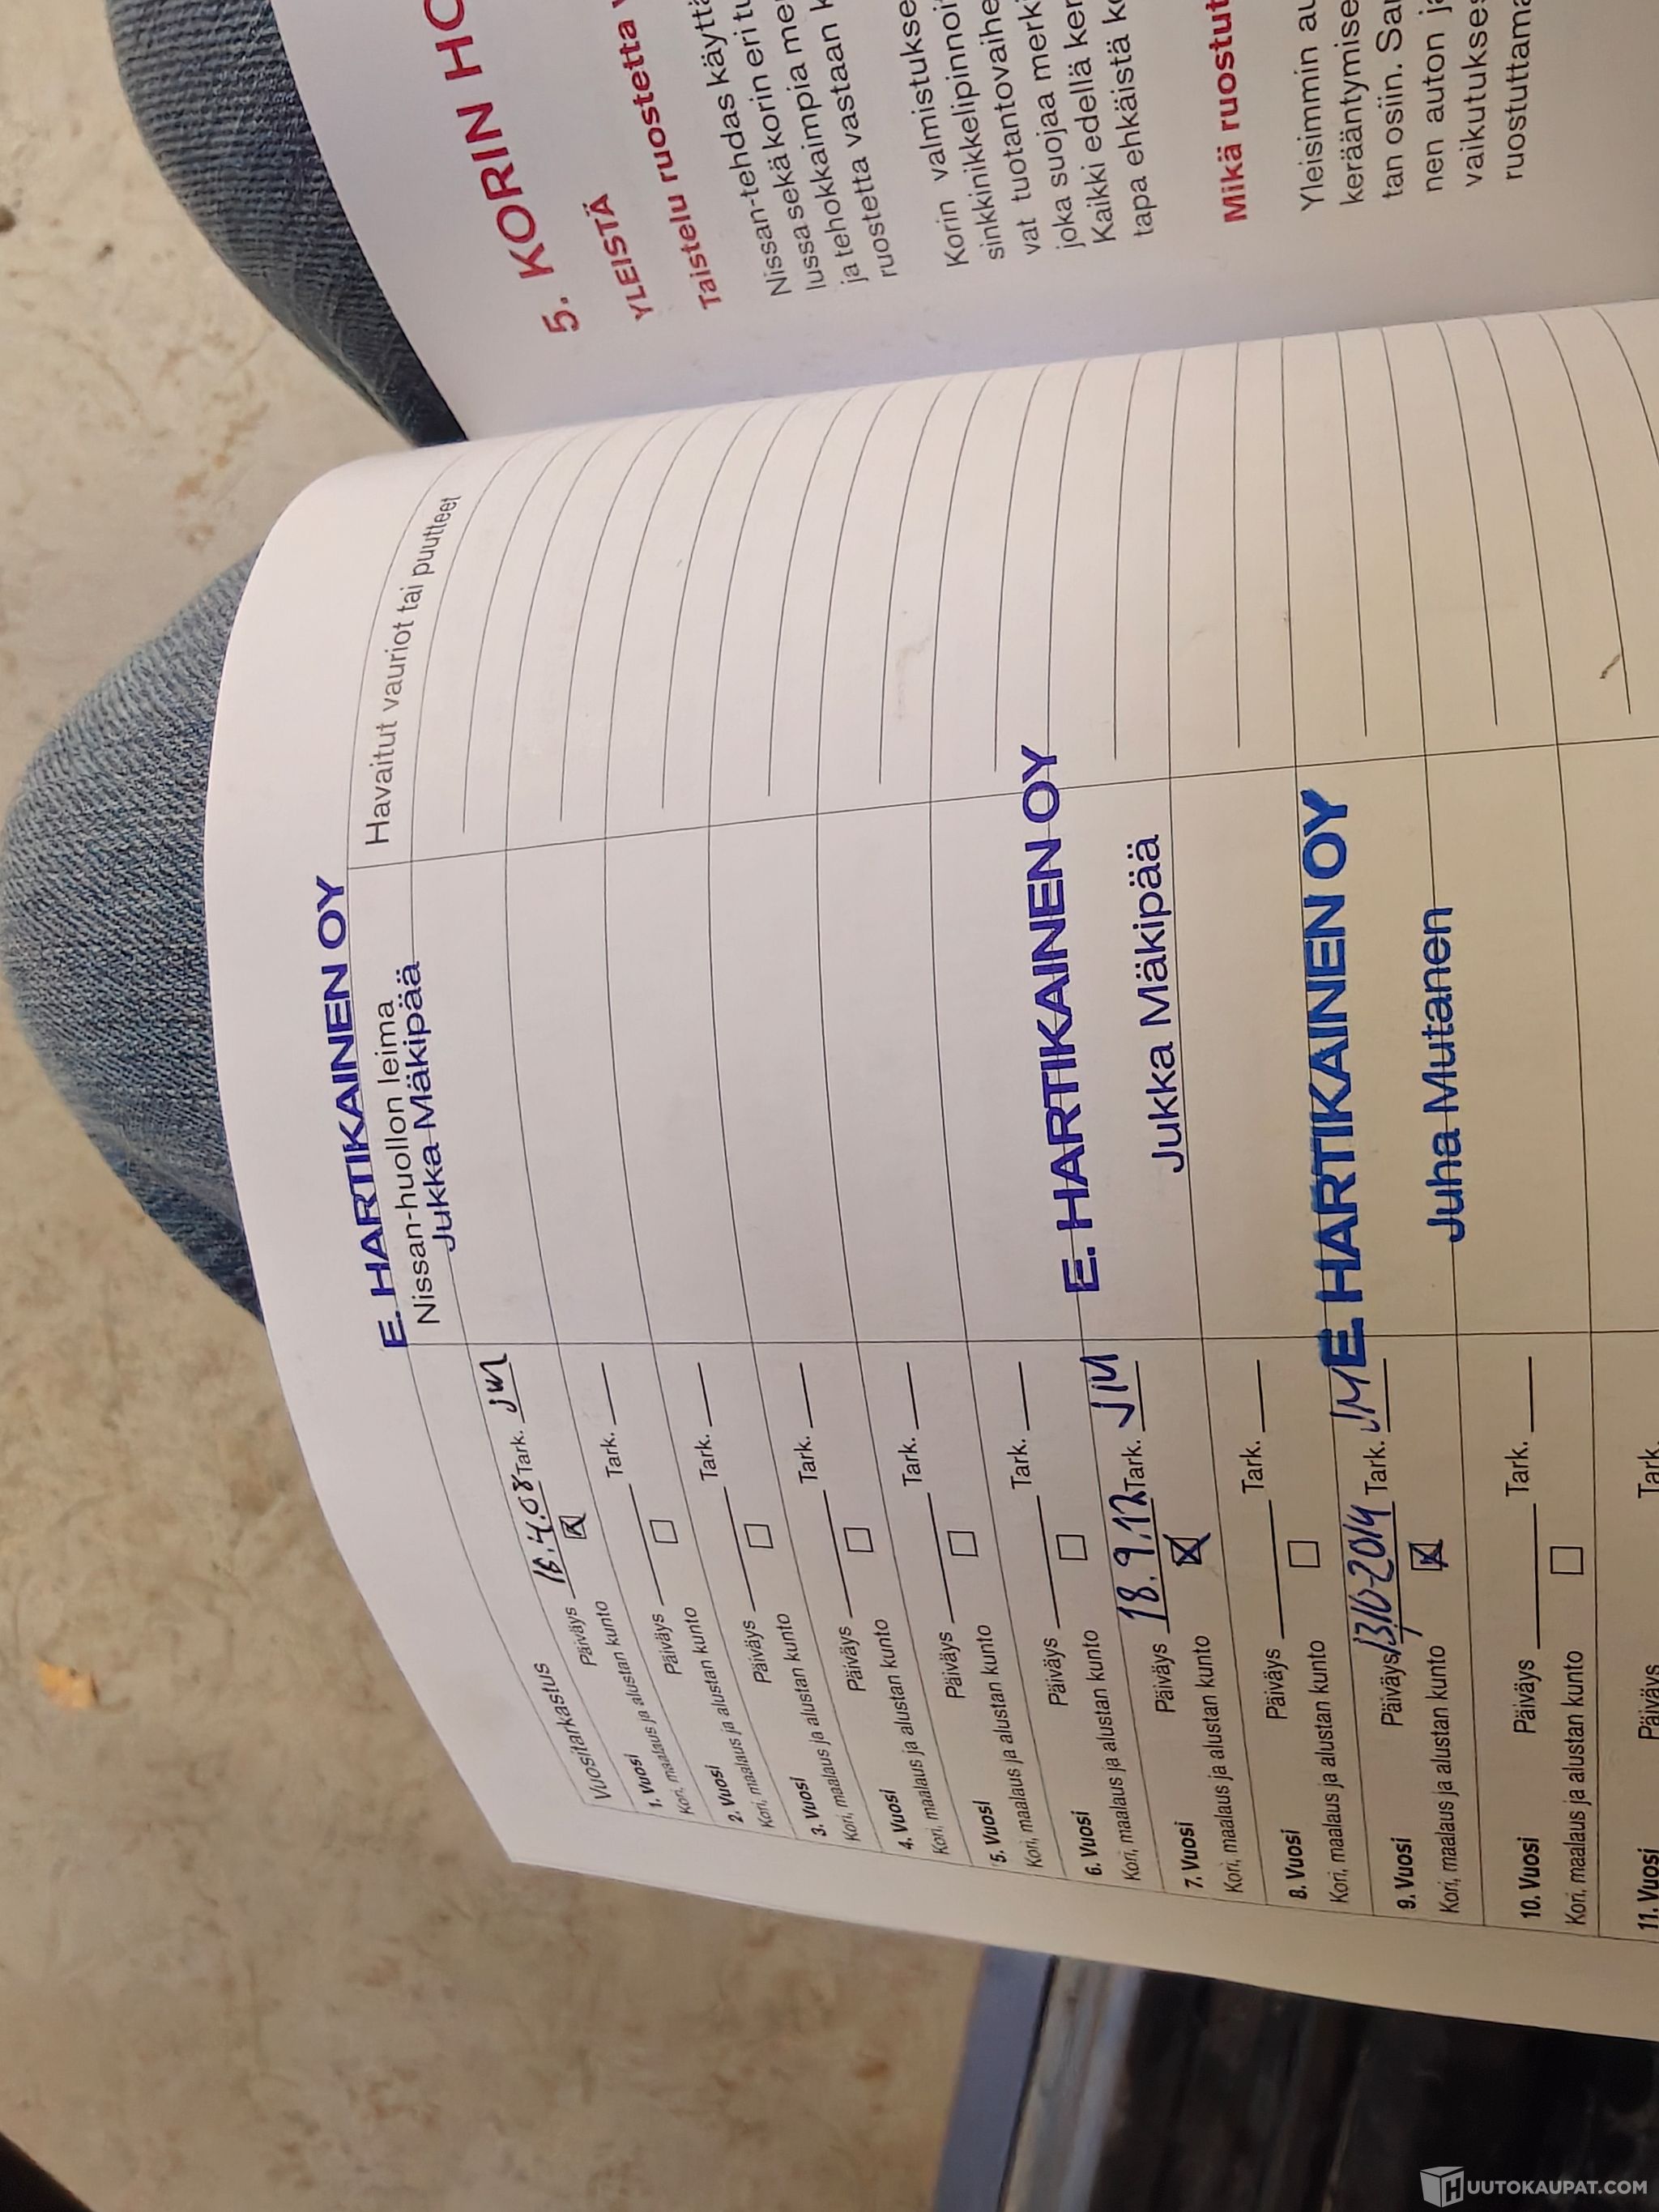 E. HARTIKAINEN OY
Vuositarkastus
Nissan-huollon leima
Havaitut vauriot tai puutteet
Jukka Mäkipää
1. Vuosi Päiväys 16.4.08 Tark. JM
Kori, maalaus ja alustan kunto
2. Vuosi Päiväys Tark.
Kori, maalaus ja alustan kunto
3. Vuosi Päiväys Tark.
Kori, maalaus ja alustan kunto
4. Vuosi Päiväys Tark.
Kori, maalaus ja alustan kunto
5. Vuosi Päiväys Tark.
Kori, maalaus ja alustan kunto
6. Vuosi Päiväys Tark.
Kori, maalaus ja alustan kunto
E. HARTIKAINEN OY
7. Vuosi Päiväys 18.9.12 Tark. JM
Kori, maalaus ja alustan kunto
Jukka Mäkipää
8. Vuosi Päiväys Tark.
Kori, maalaus ja alustan kunto
E HARTIKAINEN OY
9. Vuosi Päiväys Tark. JM
Kori, maalaus ja alustan kunto
Juha Mutanen
10. Vuosi Päiväys Tark.
Kori, maalaus ja alustan kunto
11. Vuosi Päiväys Tark.
5. KORIN
YLEISTÄ
Taistelu ruostetta
Nissan-tehdas
lussa sekä korin eri
ja tehokkaimpia
ruostetta vastaan
Korin valmistukse
sinkkinikkelipinnoi
vat tuotantovaihe
joka suojaa
Kaikki edellä
tapa ehkäistä
Mikä ruostut
Yleisimmin
kerääntymise
tan osiin.
nen auton
vaikutukse
ruostuttama
HUUTOKAUPAT.COM